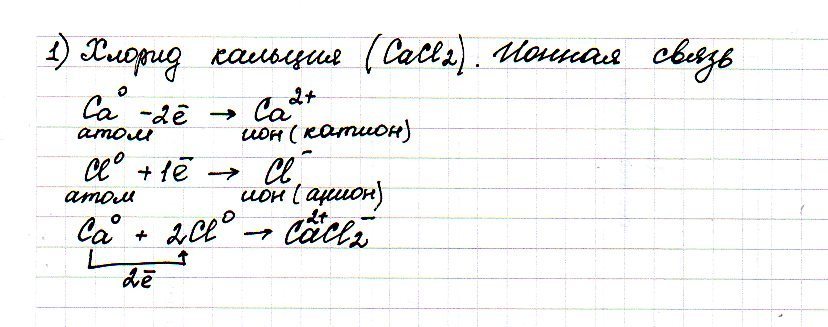 1) Хлорид кальция (CaCl₂). Ионная связь
Ca⁰ -2ē → Ca²⁺
атом ион (катион)
Cl⁰ + 1ē → Cl⁻
атом ион (анион)
Ca⁰ + 2Cl⁰ → Ca²⁺Cl₂⁻
2ē